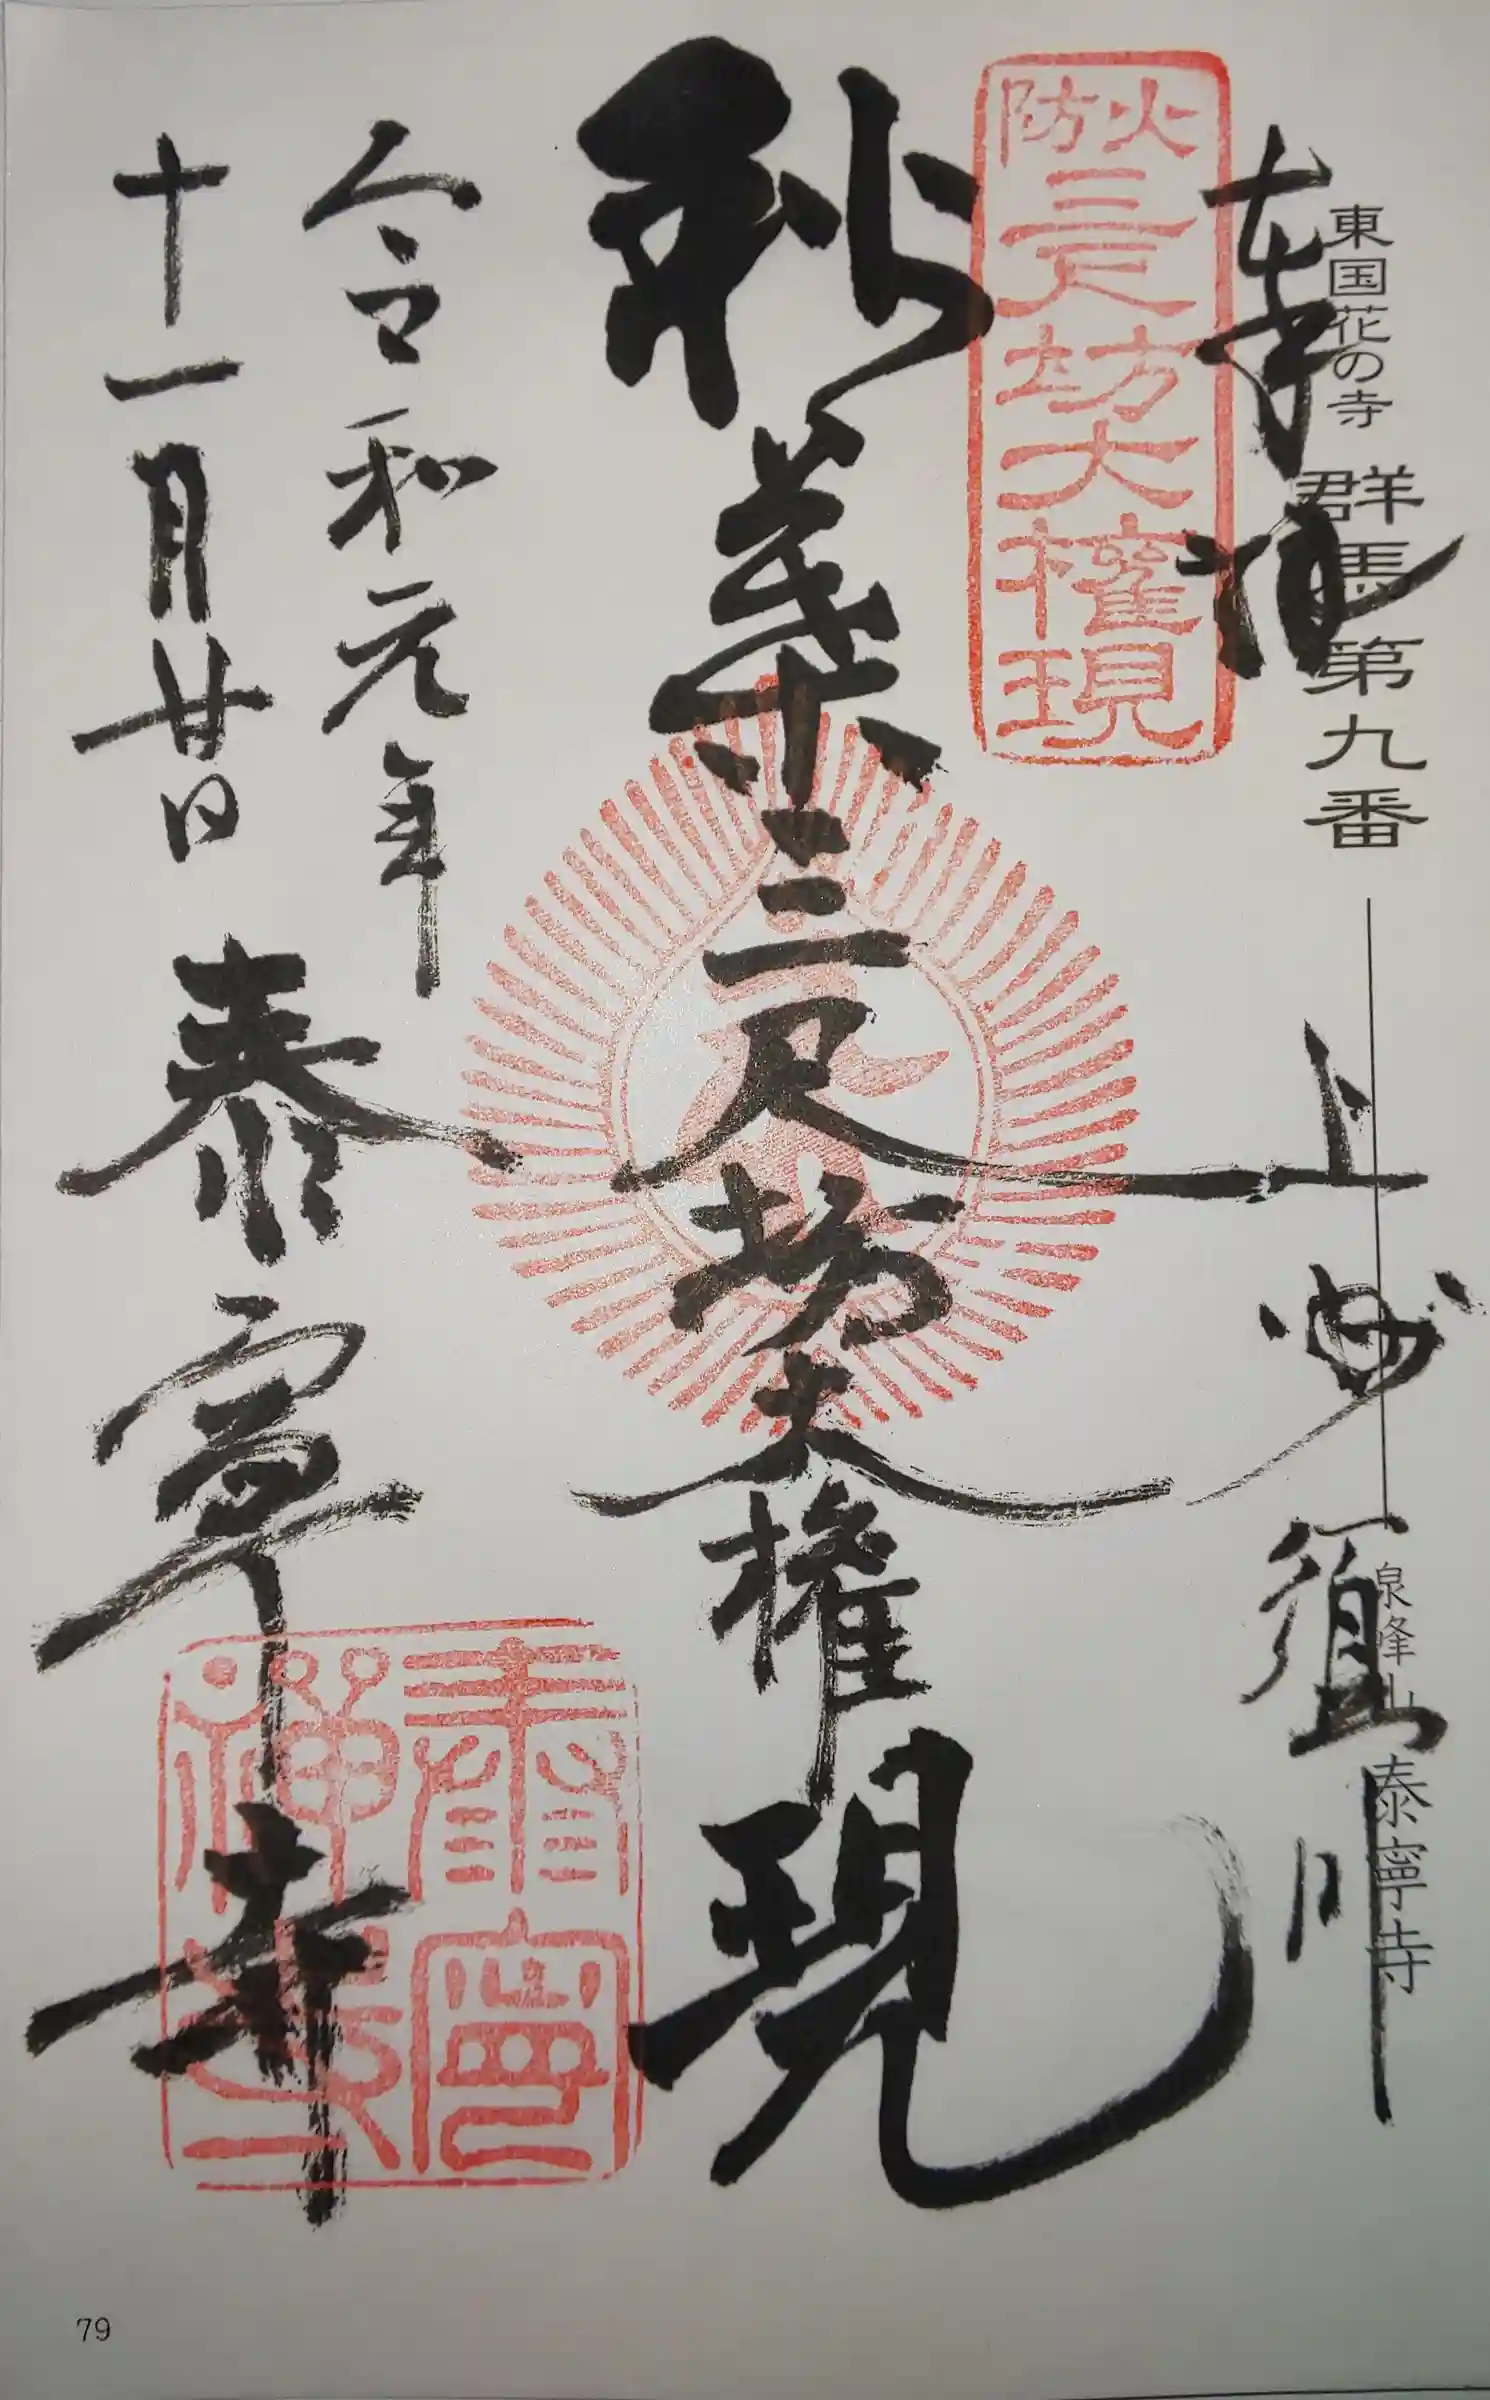 東国花の寺 群馬第九番 泉峰山 泰寧寺
奉拝 上州 須川
火防
三尺坊大権現
秋葉三尺坊大権現
令和元年
十一月廿日 泰寧寺
泰寧
禅寺
79